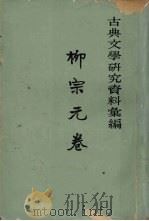 古典文學研究資料彙編
柳宗元卷